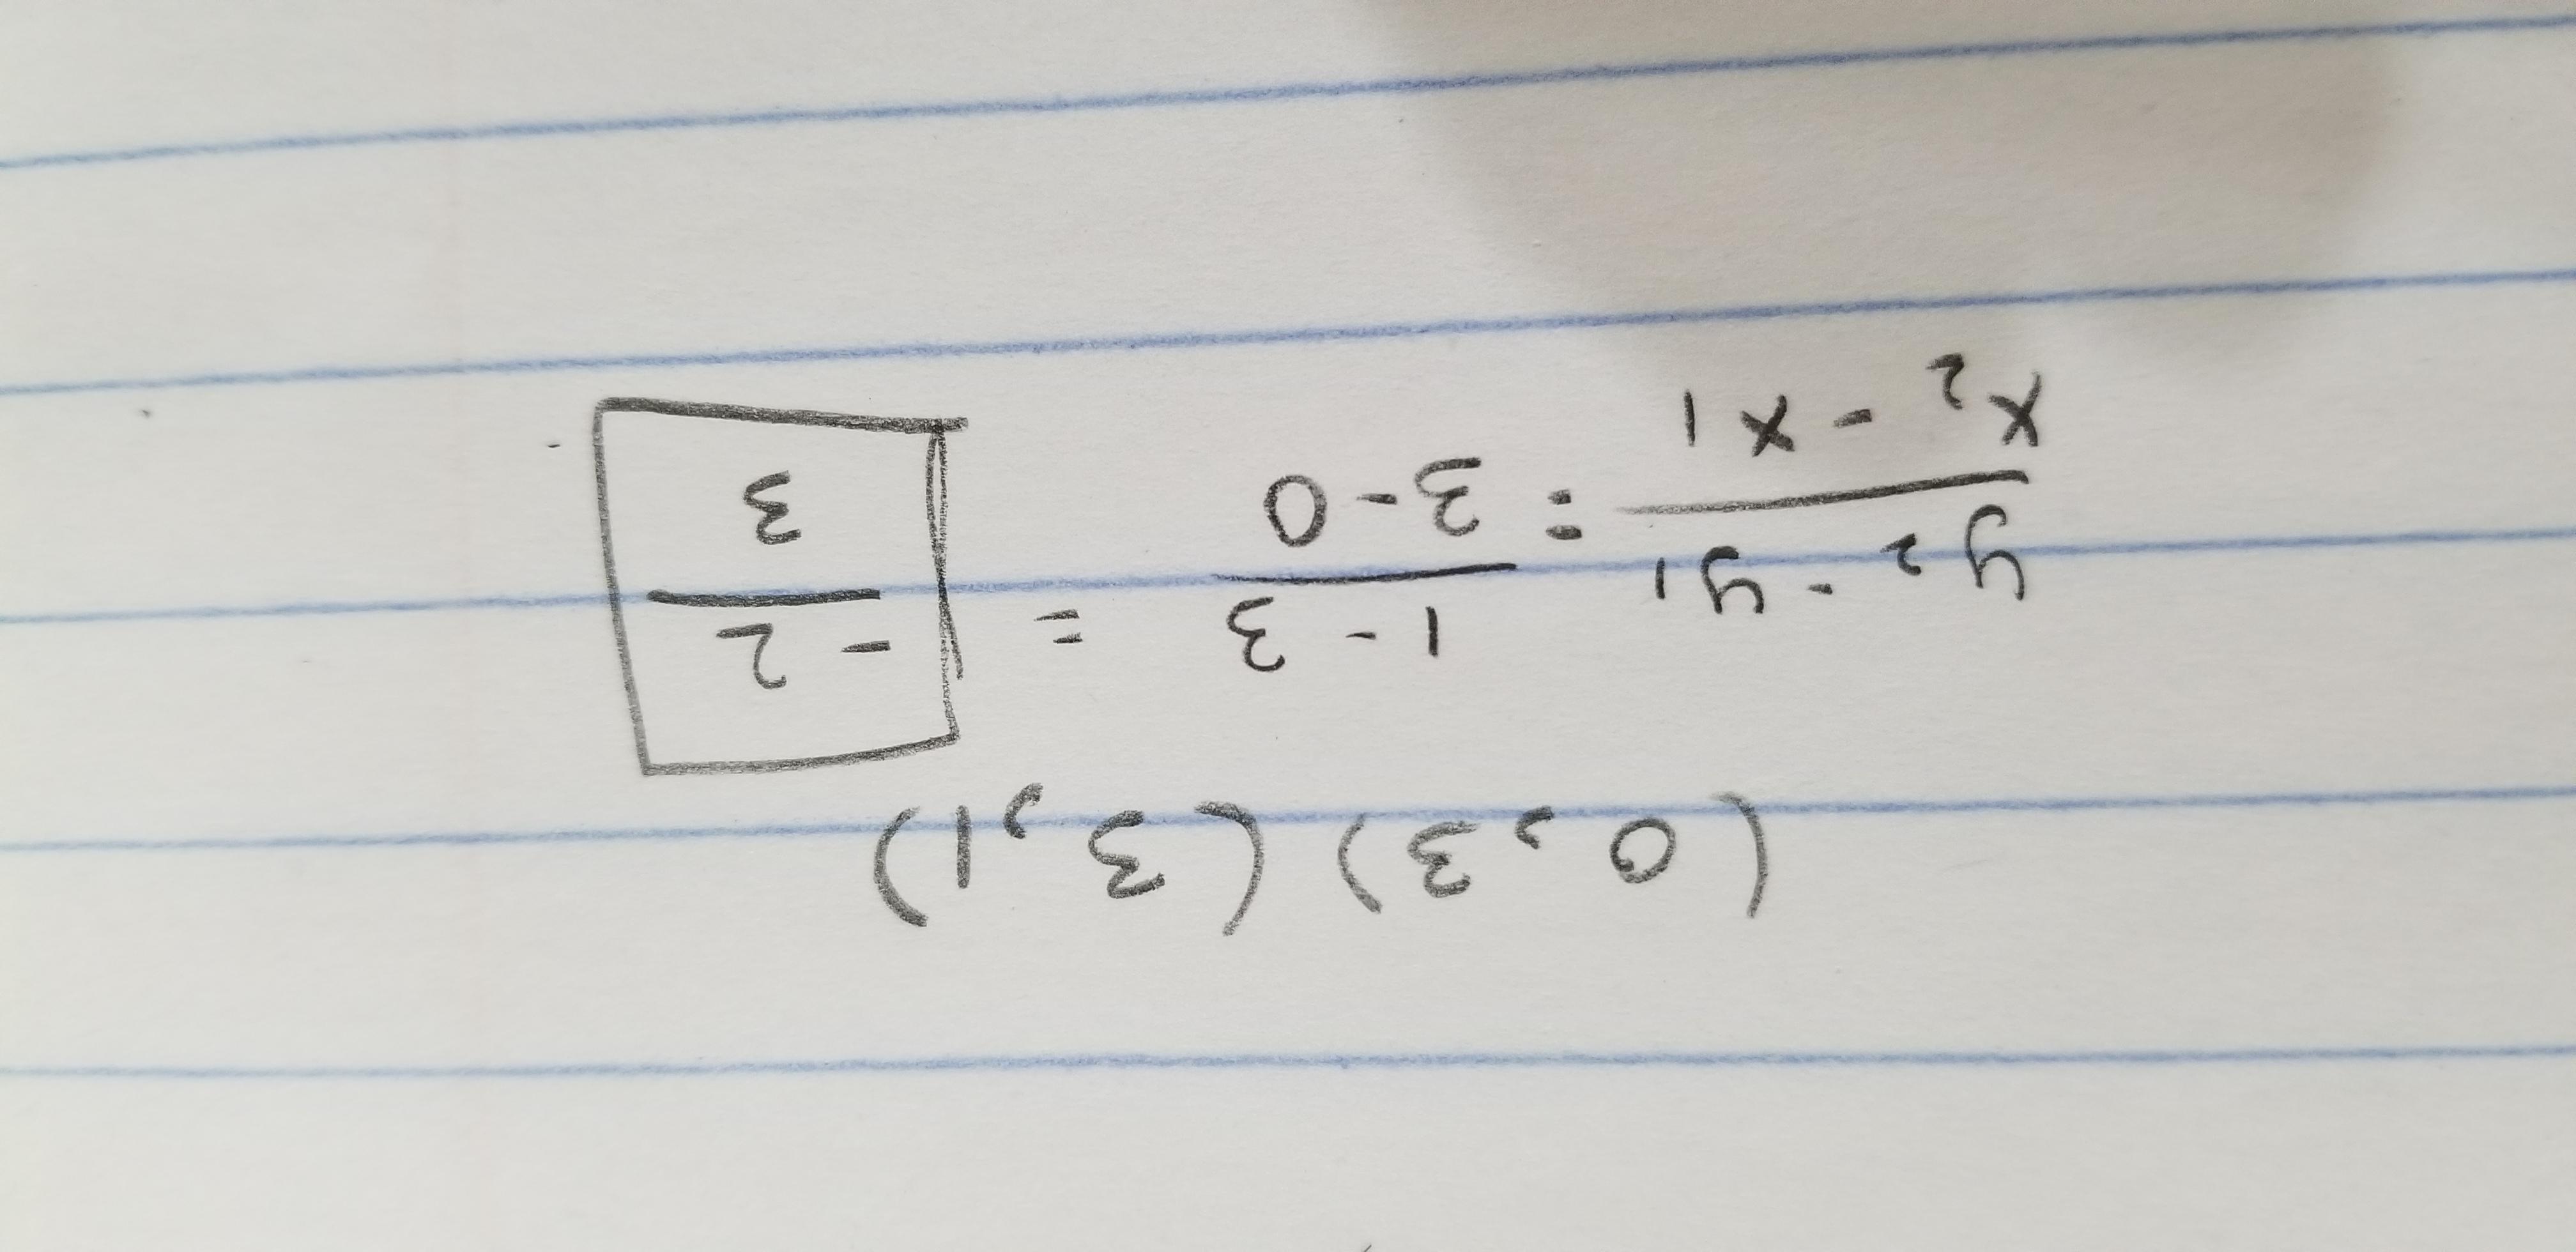 (0,3) (3,1)
y2 - y1 / x2 - x1 = 1 - 3 / 3 - 0 = -2 / 3